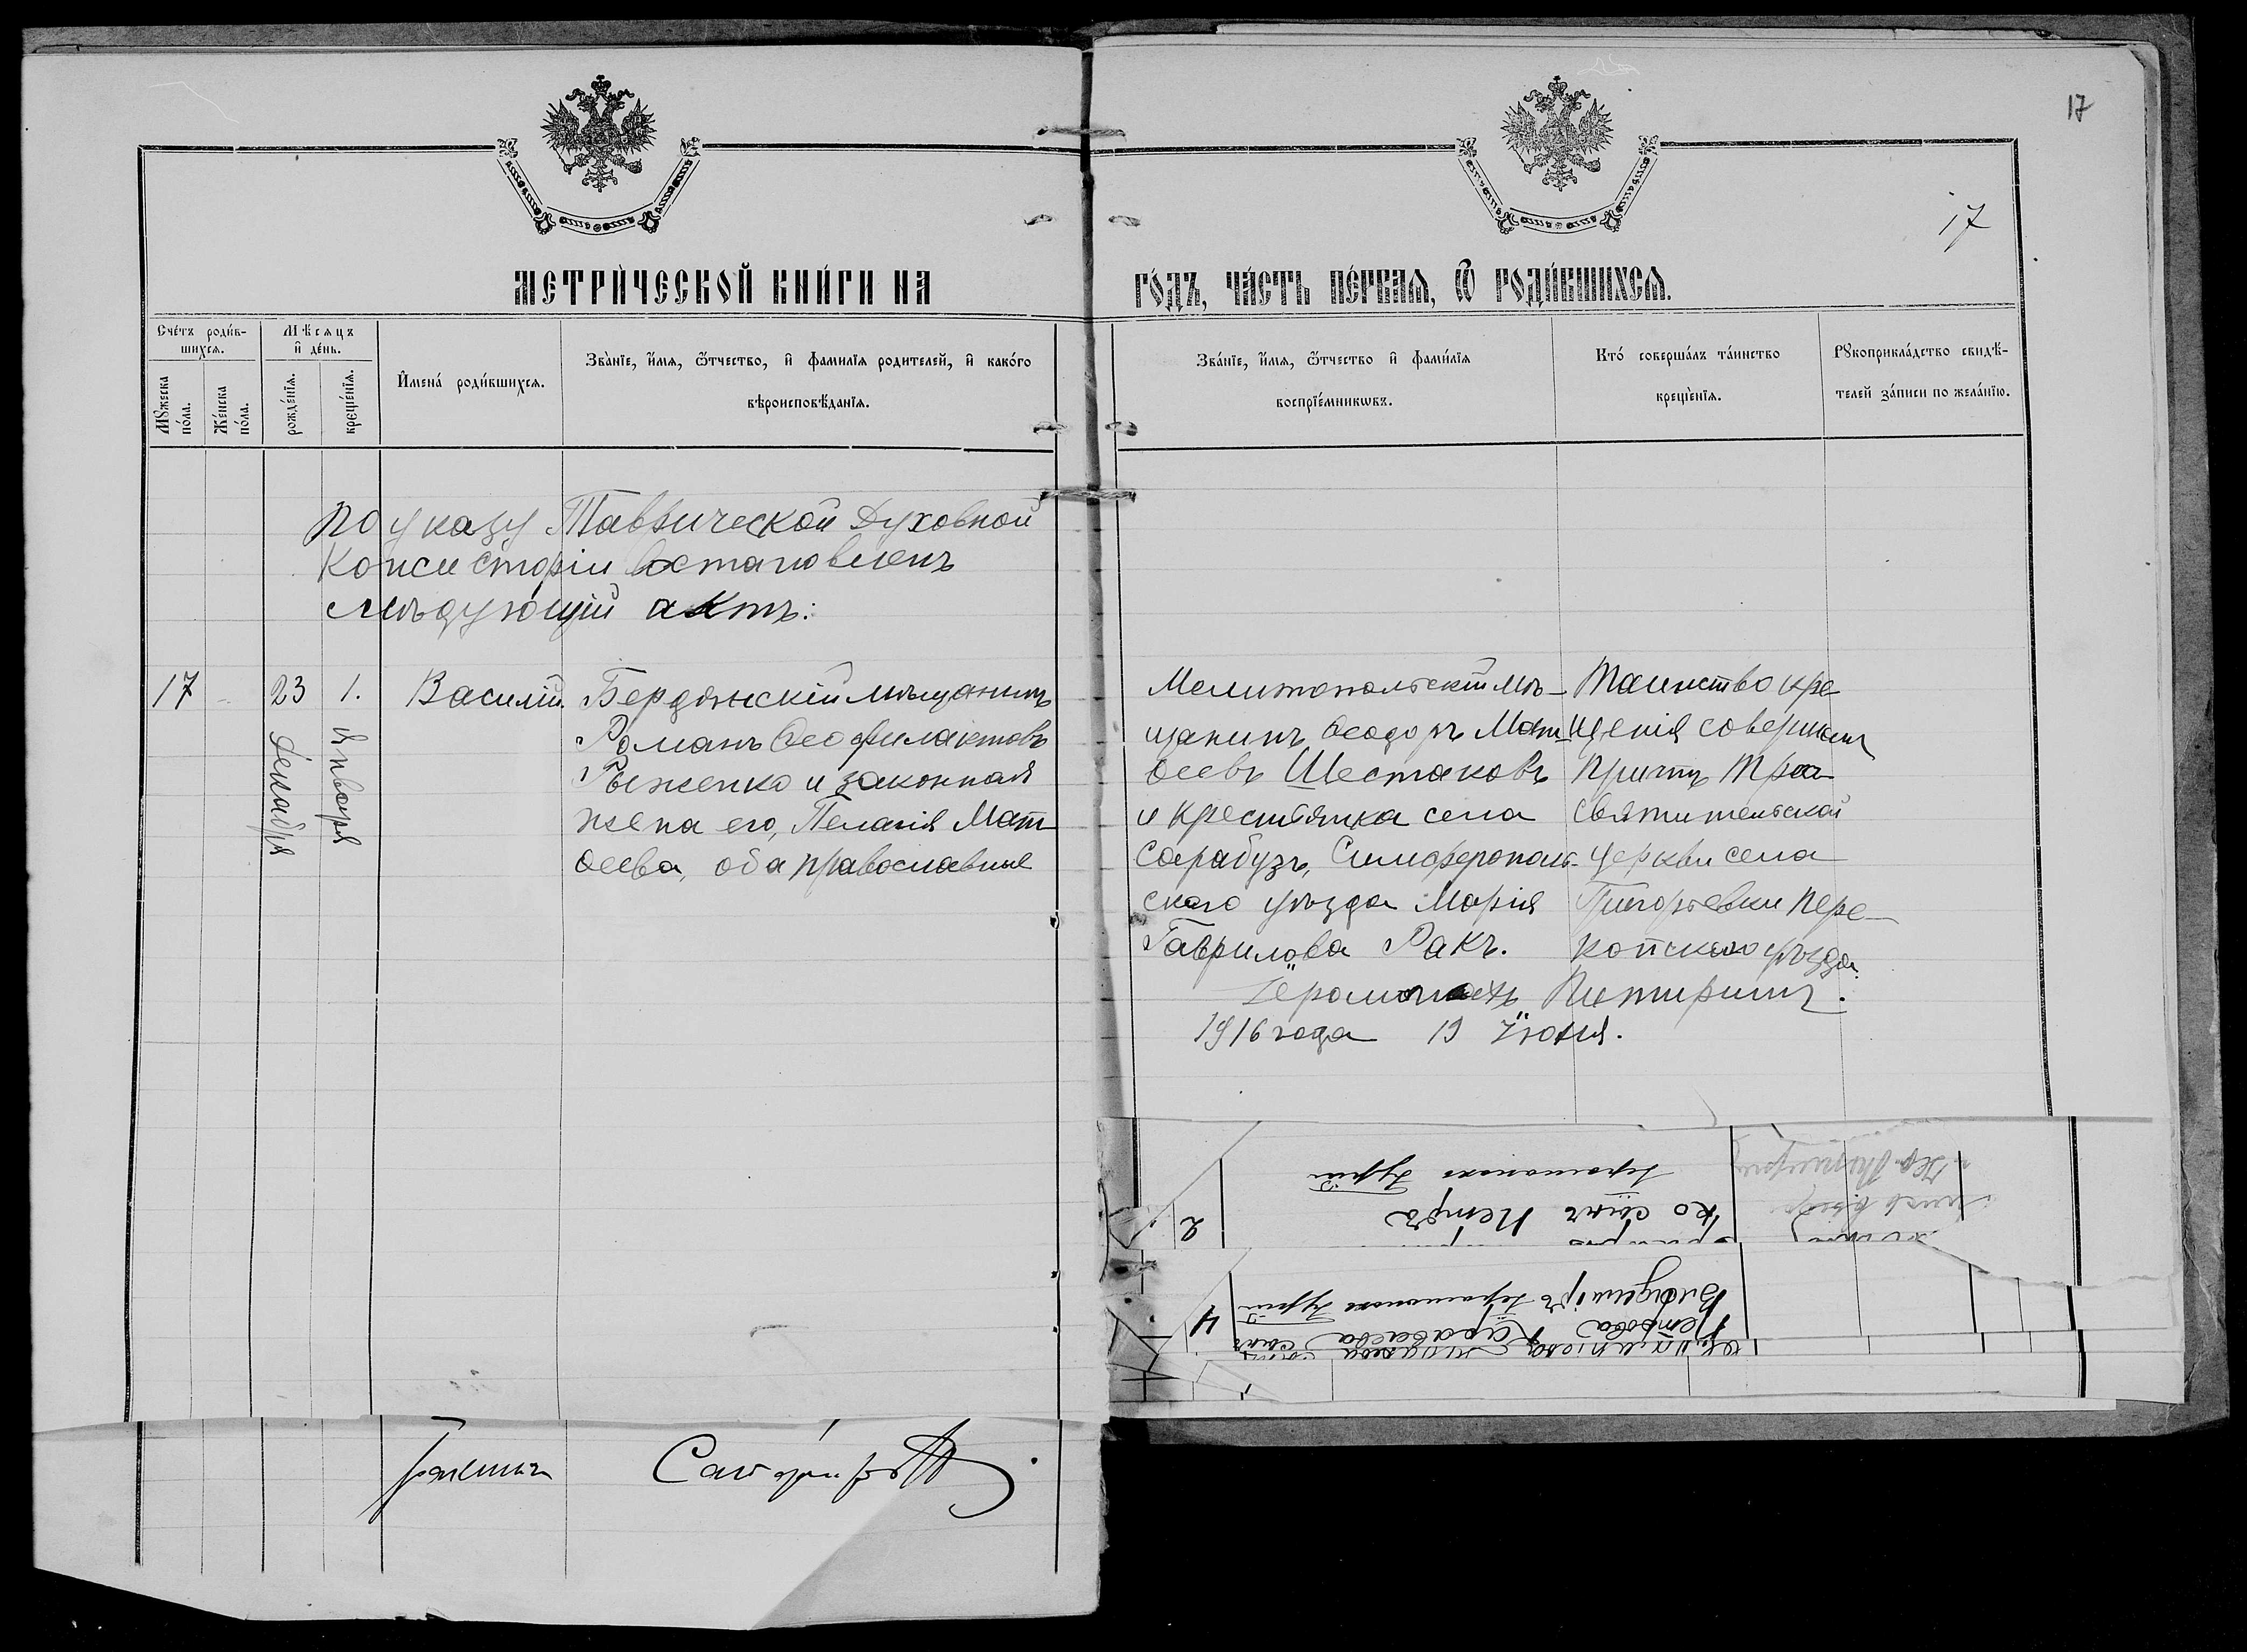 17
17
МЕТРИ́ЧЕСКОЙ КНИ́ГИ НА
ГО́ДЪ, ЧА́СТЬ ПЕ́РВАЯ, Ѿ РОДИ́ВШИХСЯ.
Сче́тъ роди́в-
шихся.
Мѣсяцъ
и҆ де́нь.
Мꙋ́жеска
по́ла.
Же́нска
по́ла.
рожде́нїя.
креще́нїя.
И҆мена́ роди́вшихся.
Зва́нїе, и҆́мя, ѻ҆́тчество, и҆ фамилїя родителей, и҆ како́го
вѣроисповѣ́данїя.
Зва́нїе, и҆́мя, ѻ҆́тчество и҆ фами́лїя
воспрїе́мникѡвъ.
Кто́ соверша́лъ та́инство
креще́нїя.
Рꙋкоприкла́дство свидѣ́-
телей за́писи по жела́нїю.
По указу Таврической Духовной
Консисторіи востановленъ
слѣдующій актъ:
17
23
Декабря
1.
Января
Василій.
Бердянскій мѣщанинъ
Романъ Ѳеофилактовъ
Рыженко и законная
жена его, Пелагія Мат-
ѳеева, оба православные
Мелитопольскій мѣ-
щанинъ Ѳеодоръ Мат-
ѳеевъ Шестаковъ
и крестьянка села
Сарабузъ, Симферополь-
скаго уѣзда Марія
Гаврилова Ракъ.
Таинство кре
щенія совершилъ
причтъ Трех
святительской
церкви села
Григорьевки Пере-
копскаго уѣзда.
Іеромонахъ Питиримъ.
1916 года 19 Іюня.
2
ко сынъ Петръ
Іеромонахъ Гурій
4
Петрова Караваева сынъ
Владиміръ Іеромонахъ Гурій